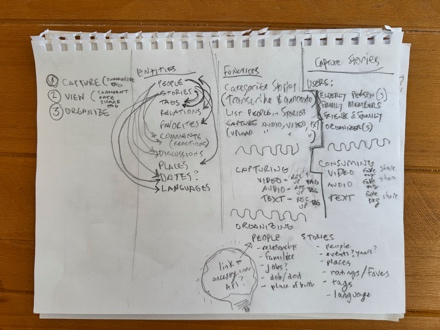 ① CAPTURE (
② VIEW (COMMENT
SHARE
TAG
③ ORGANIZE
ENTITIES
PEOPLE
STORIES
TAGS
RELATIONS
FAVORITES
COMMENTS
(REACTIONS)
DISCUSSIONS
PLACES
DATES?
LANGUAGES
FUNCTIONS
Categorize Stories
(Transcribe &
List People - Stories
CAPTURE AUDIO, VIDEO,
(UPLOAD " " ")
CAPTURING
VIDEO -
AUDIO -
TEXT -
ORGANIZING
PEOPLE
- relationship
- families
- jobs?
- dob/dod
- place of birth
STORIES
- people
- events? years?
- places
- ratings/faves
- tags
- language
link to
ancestry.com
API?
Capture Stories
USERS:
ELDERLY PERSON(S)
FAMILY MEMBERS
FRIENDS & FAMILY
ORGANIZER(S)
CONSUMING
VIDEO
AUDIO
TEXT
share